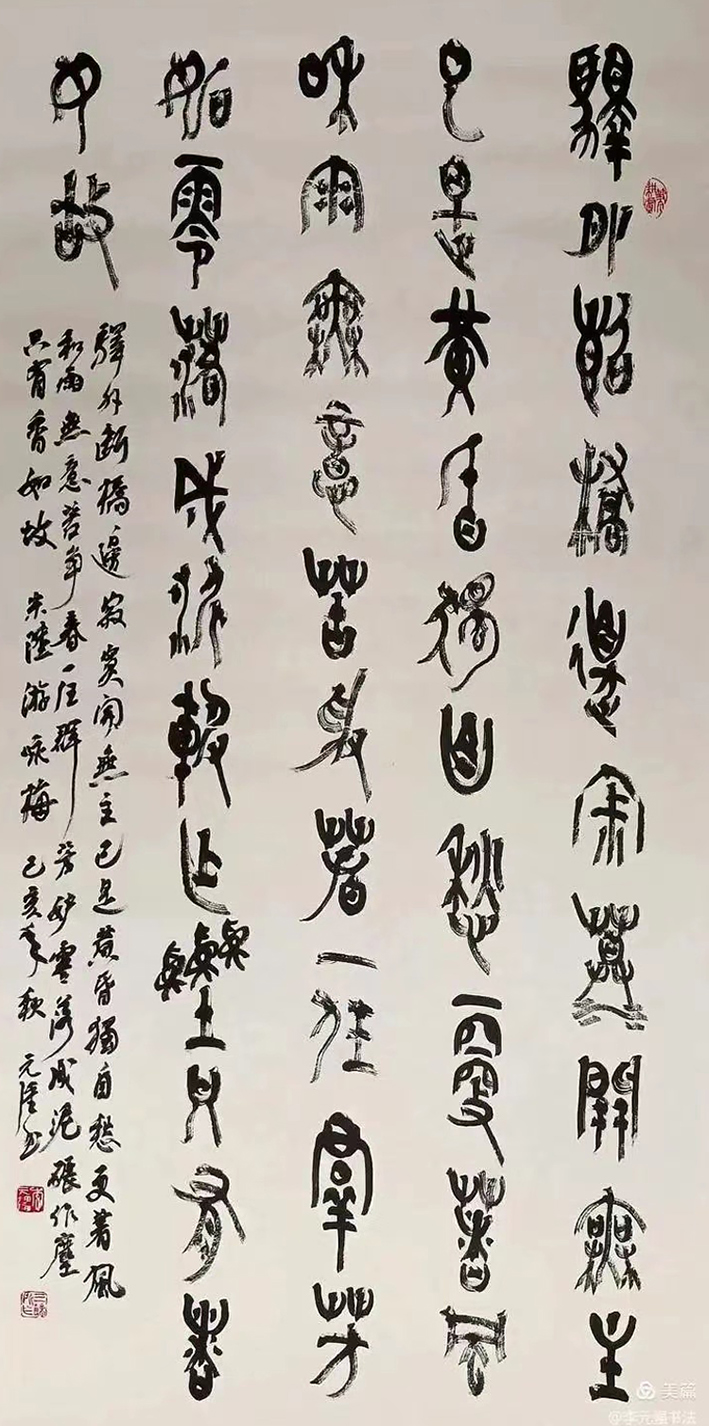 驛外斷橋邊寂寞開無主
已是黃昏獨自愁更著風
和雨無意苦爭春一任羣芳
妒零落成泥碾作塵只有香
如故
驛外断橋邊寂寞開無主已是黄昏獨自愁更著風
和雨無意苦爭春一任群芳妒零落成泥碾作塵
只有香如故 宋陸游咏梅 己亥年秋 元书
美篇